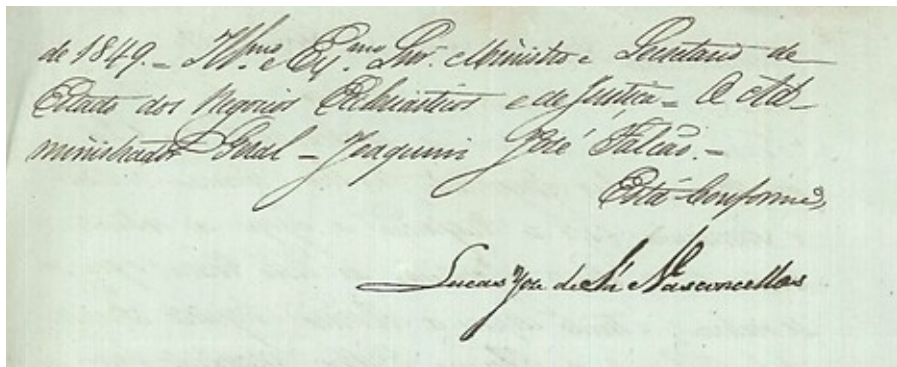 de 1849. – Illmo. e Exmo. Snr. Ministro e Secretario de
Estado dos Negocios Ecclesiasticos e de Justiça – O Ad-
ministrador Geral – Joaquim José Falcão. –
Está Conforme,
Lucas José de Sá Vasconcellos